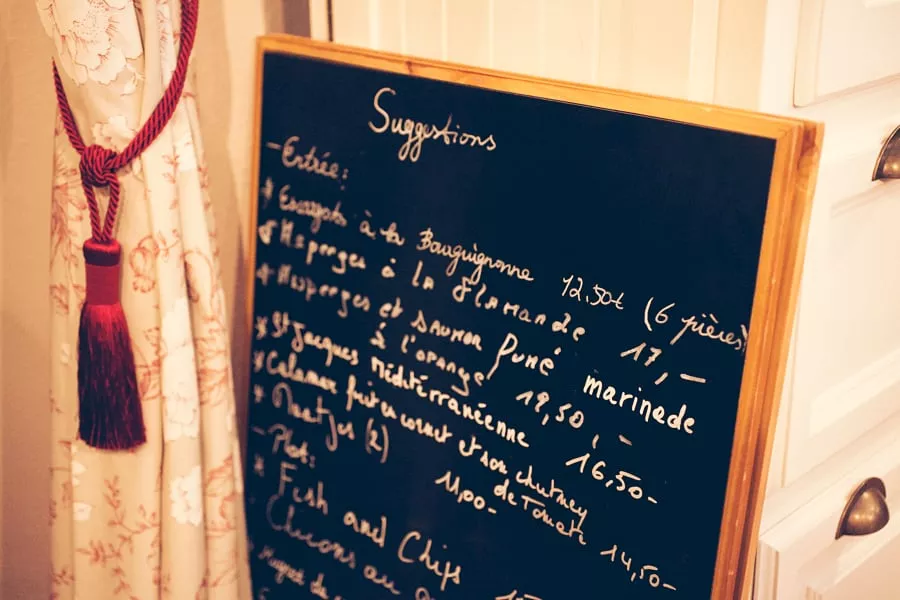 Suggestions
- Entrée:
* Escargots à la Bourguignonne 12,50€ (6 pièces)
* Asperges à la Flamande 17,-
* Asperges et saumon fumé marinade
à l'orange 19,50,-
* St Jacques méditérranéenne 16,50-
* Calamar frit en cornet et son chutney
de Tomate 14,50-
* Maatjes (2) 11,00-
- Plat:
* Fish and Chips